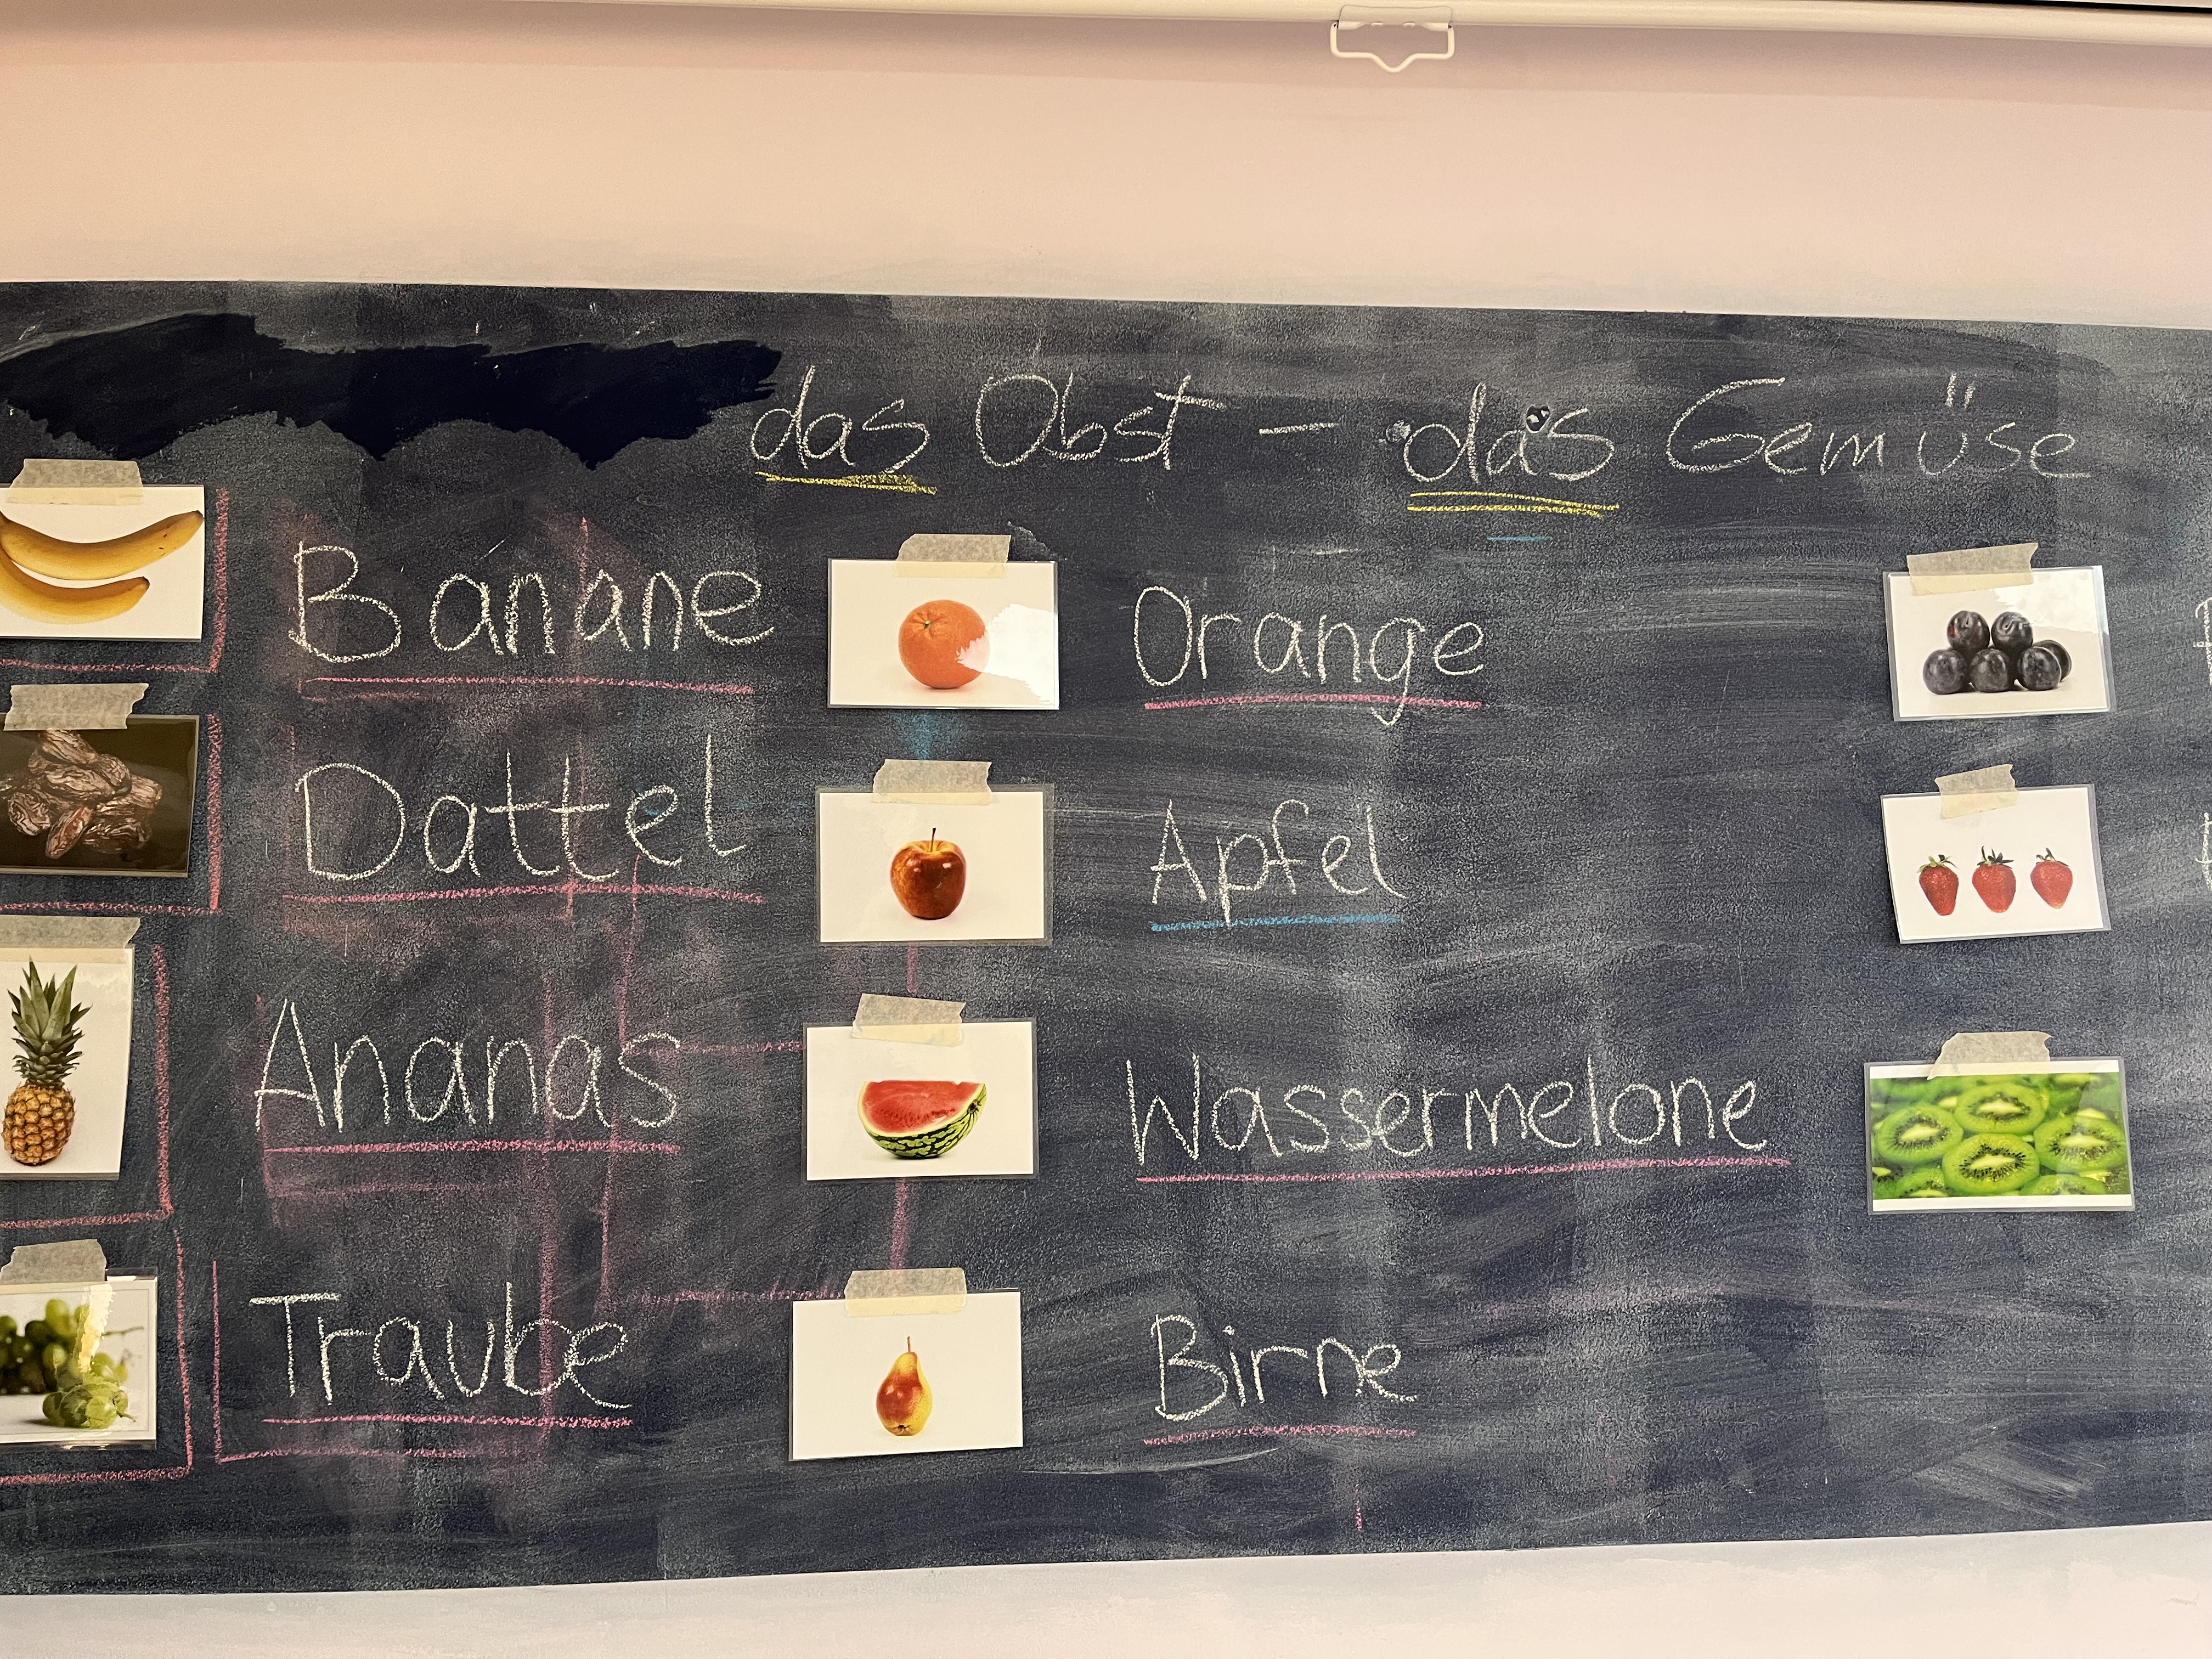 das Obst – das Gemüse
Banane
Orange
Dattel
Apfel
Ananas
Wassermelone
Traube
Birne